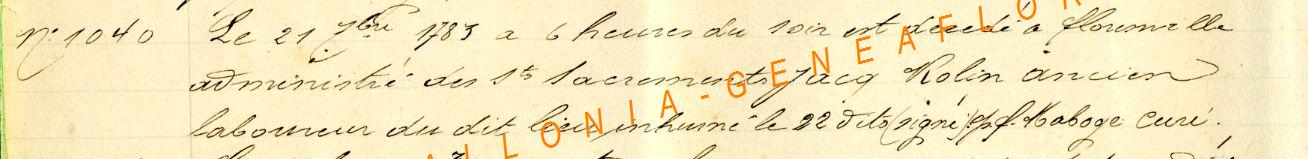 N° 1040 Le 21 7bre 1783 a 6 heures du soir est décédé a florenville
administré des Sts Sacrements Jacq Rolin ancien
laboureur du dit lieu, inhumé le 22 dito (signé) Haboge curé.
WALLONIA-GENEAFLOR